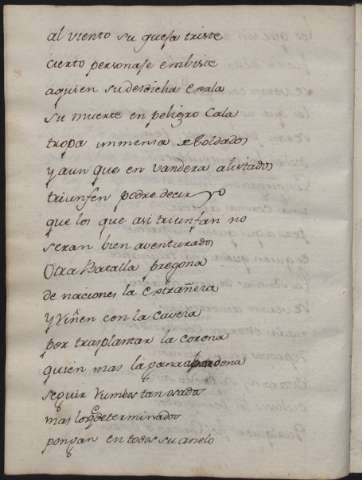 al viento su quexa triste
cierto personaje embiste
a quien su desdicha escala
su muerte en peligro cala
tropa inmensa de soldados
y aun que en vandera alistados
triunfen podre decir yo
que los que asi triunfan no
seran bien aventurados
Otra Batalla pregona
de naciones la extrañeza
y riñen con la caveza
por trasplantar la corona
quien mas la para abandona
seguir rumbos tan osada
mas los determinados
pongan en todos su anelo